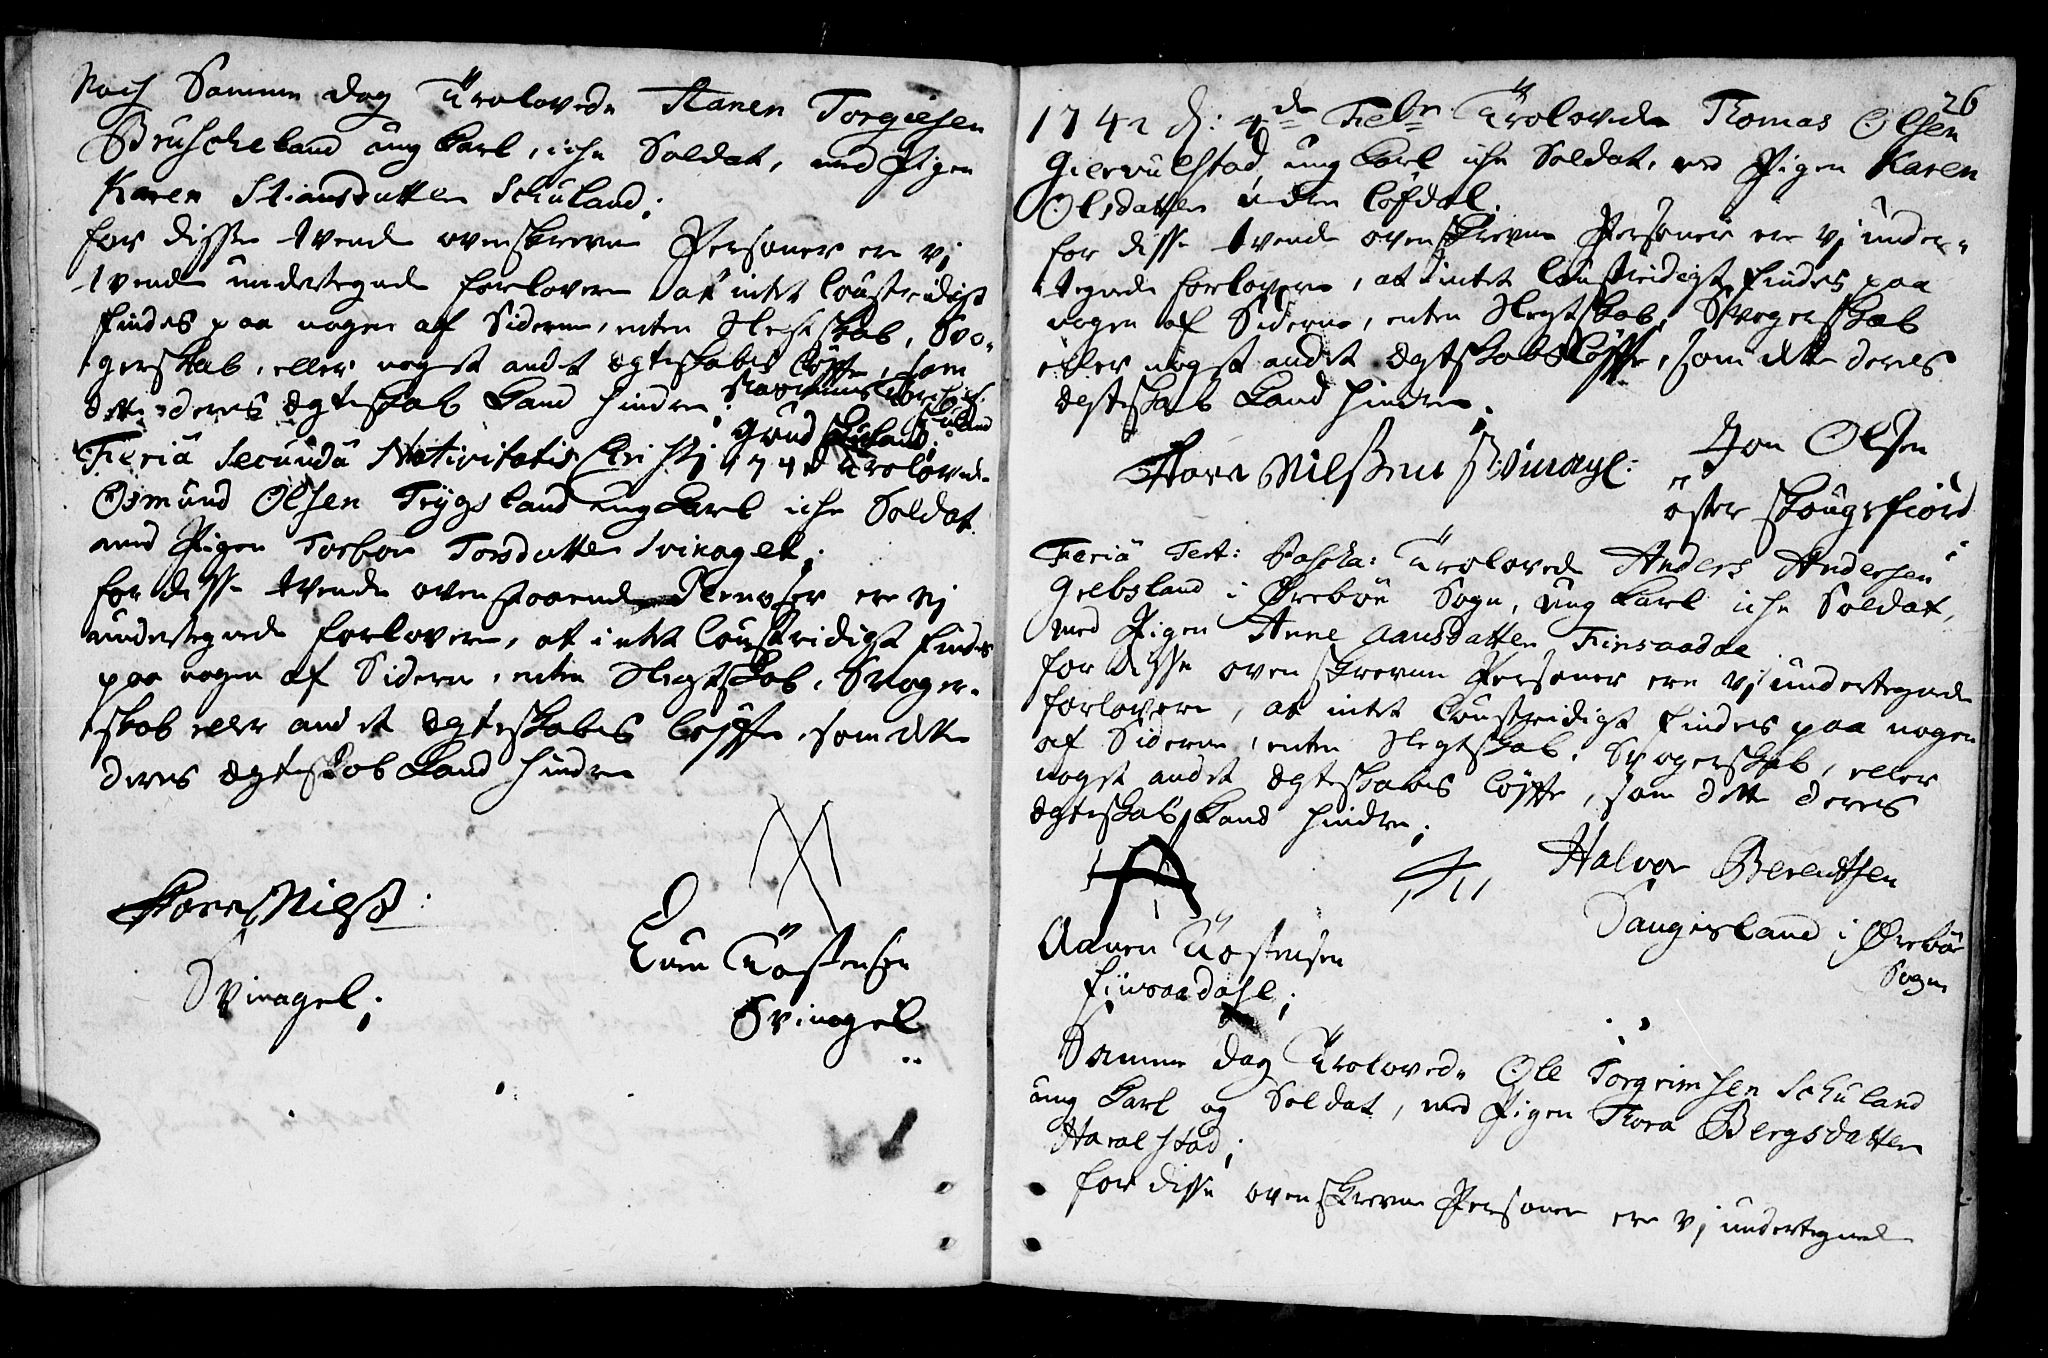 Noch Samme dag Trolovede Aanen Torgiesen
Bruscheland ung karl, iche Soldat, med Pigen
Karen Stiansdatter Schuland;
for disse tvende ovenskrevne Personer ere vj
tvende undertegnede forlovere at intet loustridigt
findes paa nogen af Siderne, enten Slegtskab, Svo-
gerskab, eller noget andet ægteskabs løffte, som
dette deres ægteskab kand hindre.
Schuland
Feriâ Secundâ Nativitatis Christi 174 Trolovede
Osmund Olsen Trygsland ung karl iche Soldat
med Pigen Torbor Torsdatter Svinagel;
for disse tvende ovenstaaende Personer ere vj
undertegnede forlovere, at intet loustridigt findes
paa nogen af Siderne, enten Slegtskab, Svoger-
skab eller andet ægteskabs løffte, som dette
deres ægteskab kand hindre
Tore Nilss:
Svinagel;
Even Tostensen
Svinagel
26
1742 d: 4de Febr Trolovede Thomas Olsen
Giervulstad, ung karl iche Soldat, med Pigen Karen
Olsdatter løfdal.
for disse tvende ovenskrevne Personer ere vj under-
tegnede forlovere, at intet loustridigt findes paa
nogen af Siderne, enten Slegtskab, Svogerskab
eller noget andet ægteskabs løffte, som dette deres
ægteskab kand hindre.
Tore Nilsen Svinagl:
Jon Olsen
øster skougsfiord
Feriâ Tert: Pascha: Trolovede Anders Andersen
Gelbsland i Ørebøe Sogn, ung karl iche Soldat,
med Pigen Anne Aansdatter Finsaadal
for disse ovenskrevne Personer ere vj undertegnede
forlovere, at intet loustridigt findes paa nogen
af Siderne, enten Slegtskab, Svogerskab, eller
noget andet ægteskabs løffte, som dette deres
ægteskab kand hindre;
Aanen Tostensen
finsaadahl;
Halvor Berentsen
Daugesland i Ørebøe
Sogn
Samme dag Trolovede Ole Torgrimsen Schuland
ung karl og Soldat, med Pigen Thora Bergsdatter
Haralstad;
for disse ovenskrevne Personer ere vj undertegnede